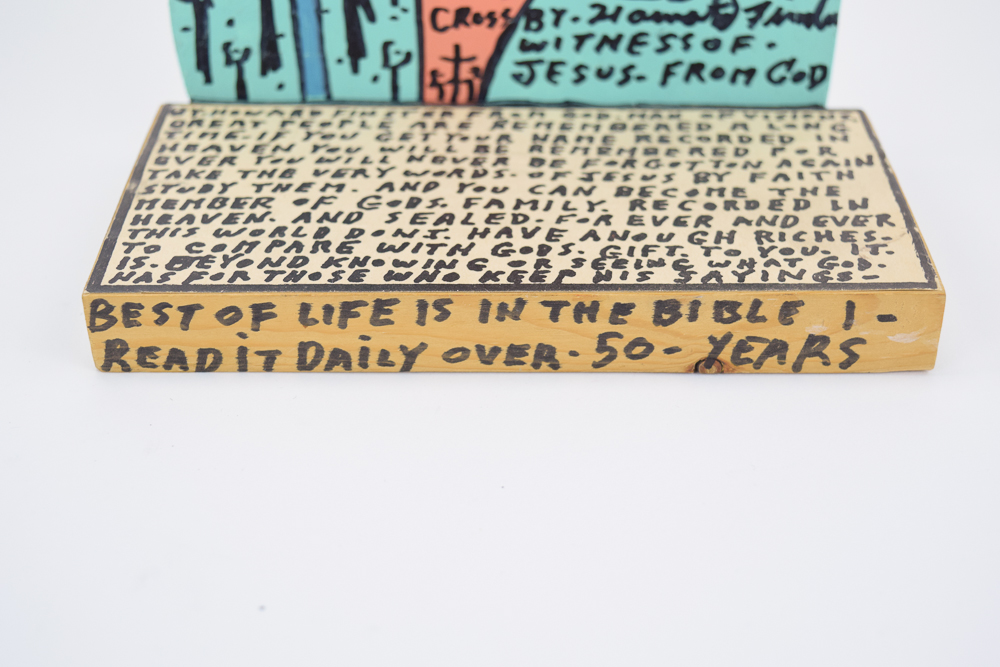 CROSS BY. Howard Finster
WITNESS OF.
JESUS. FROM GOD
GREAT PEOPLE ARE REMEMBERED A LONG
TIME. IF YOU GET YOUR NAME RECORDED IN
HEAVEN YOU WILL BE REMEMBERED FOR
EVER YOU WILL NEVER BE FORGOTTON AGAIN
TAKE THE VERY WORDS. OF JESUS BY FAITH
STUDY THEM. AND YOU CAN BECOME THE
MEMBER OF GODS. FAMILY. RECORDED IN
HEAVEN. AND SEALED. FOREVER AND EVER
THIS WORLD DONT. HAVE ANOUGH RICHES.
TO COMPARE WITH GODS. GIFT. TO YOU. IT.
IS. BEYOND KNOWING OR SEEING WHAT GOD.
HAS FOR THOSE WHO KEEP HIS SAYINGS-
BEST OF LIFE IS IN THE BIBLE I-
READ IT DAILY OVER. 50- YEARS